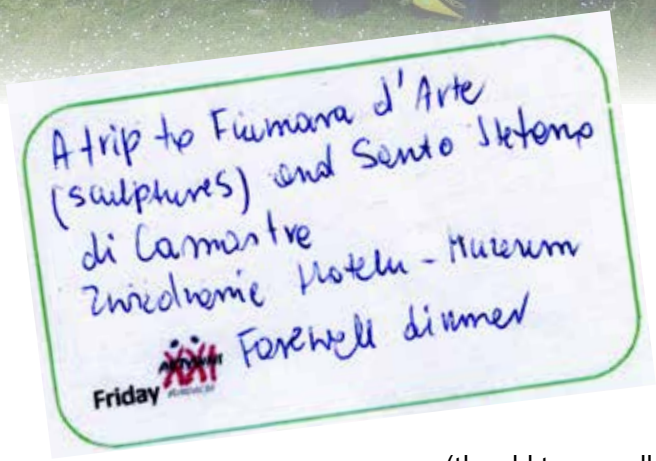 A trip to Fiumara d'Arte
(sculptures) and Santo Stefano
di Camastre
Zwiedzanie Hotelu - Muzeum
Farewell dinner
Friday XXI